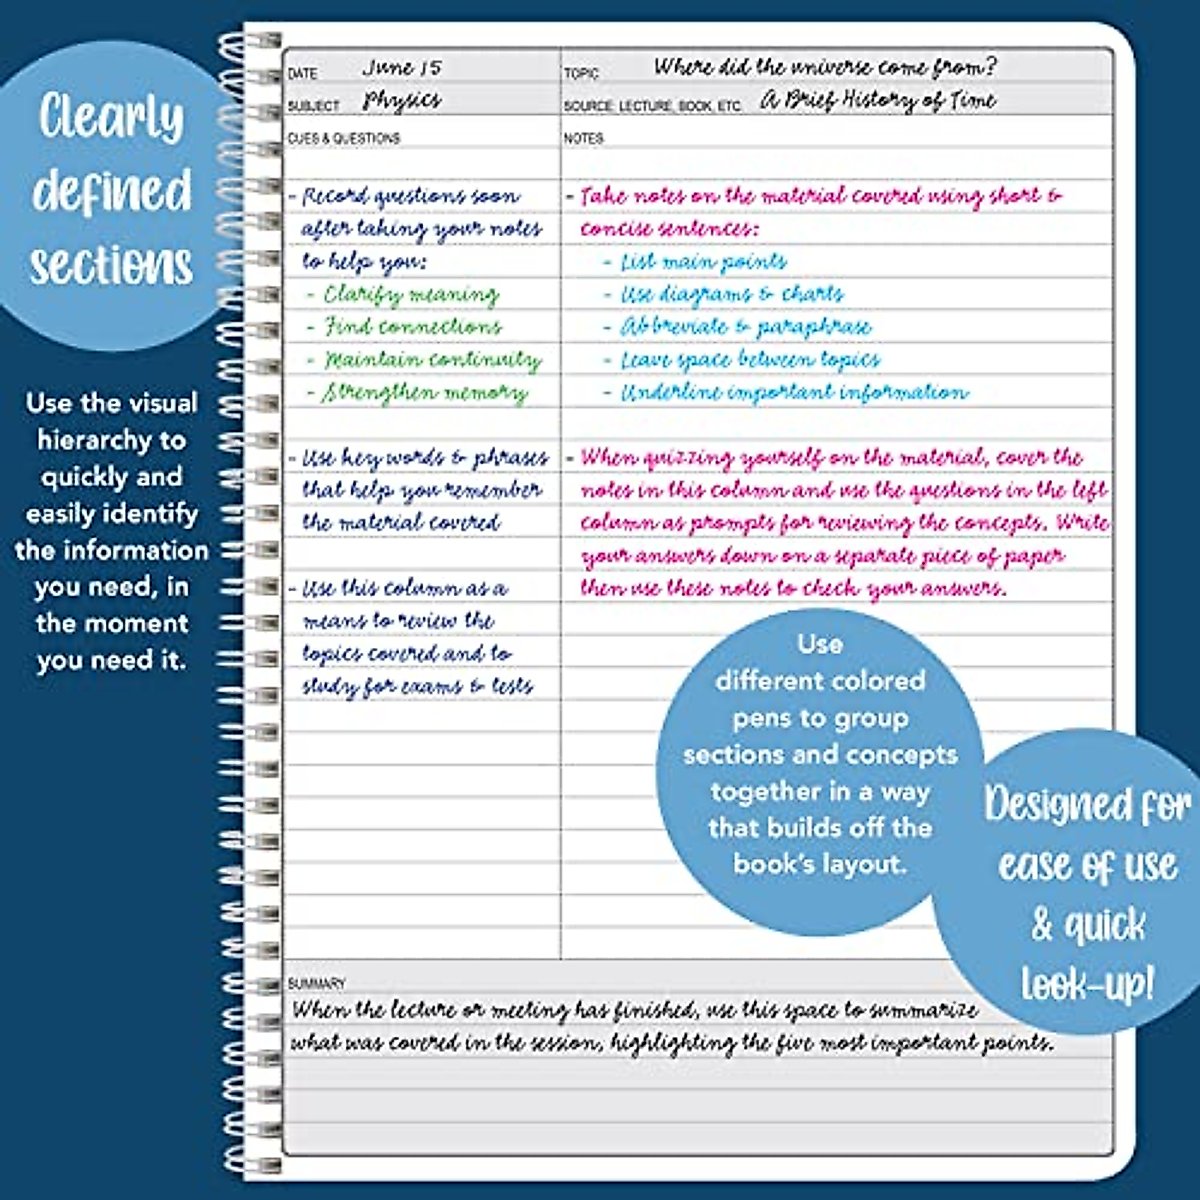 Clearly
defined
sections
Use the visual
hierarchy to
quickly and
easily identify
the information
you need, in
the moment
you need it.
DATE June 15
SUBJECT Physics
TOPIC Where did the universe come from?
SOURCE, LECTURE, BOOK, ETC. A Brief History of Time
CUES & QUESTIONS
- Record questions soon
after taking your notes
to help you:
- Clarify meaning
- Find connections
- Maintain continuity
- Strengthen memory
- Use key words & phrases
that help you remember
the material covered
- Use this column as a
means to review the
topics covered and to
study for exams & tests
NOTES
- Take notes on the material covered using short &
concise sentences:
- List main points
- Use diagrams & charts
- Abbreviate & paraphrase
- Leave space between topics
- Underline important information
- When quizzing yourself on the material, cover the
notes in this column and use the questions in the left
column as prompts for reviewing the concepts. Write
your answers down on a separate piece of paper
then use these notes to check your answers.
Use
different colored
pens to group
sections and concepts
together in a way
that builds off the
book's layout.
Designed for
ease of use
& quick
look-up!
SUMMARY
When the lecture or meeting has finished, use this space to summarize
what was covered in the session, highlighting the five most important points.